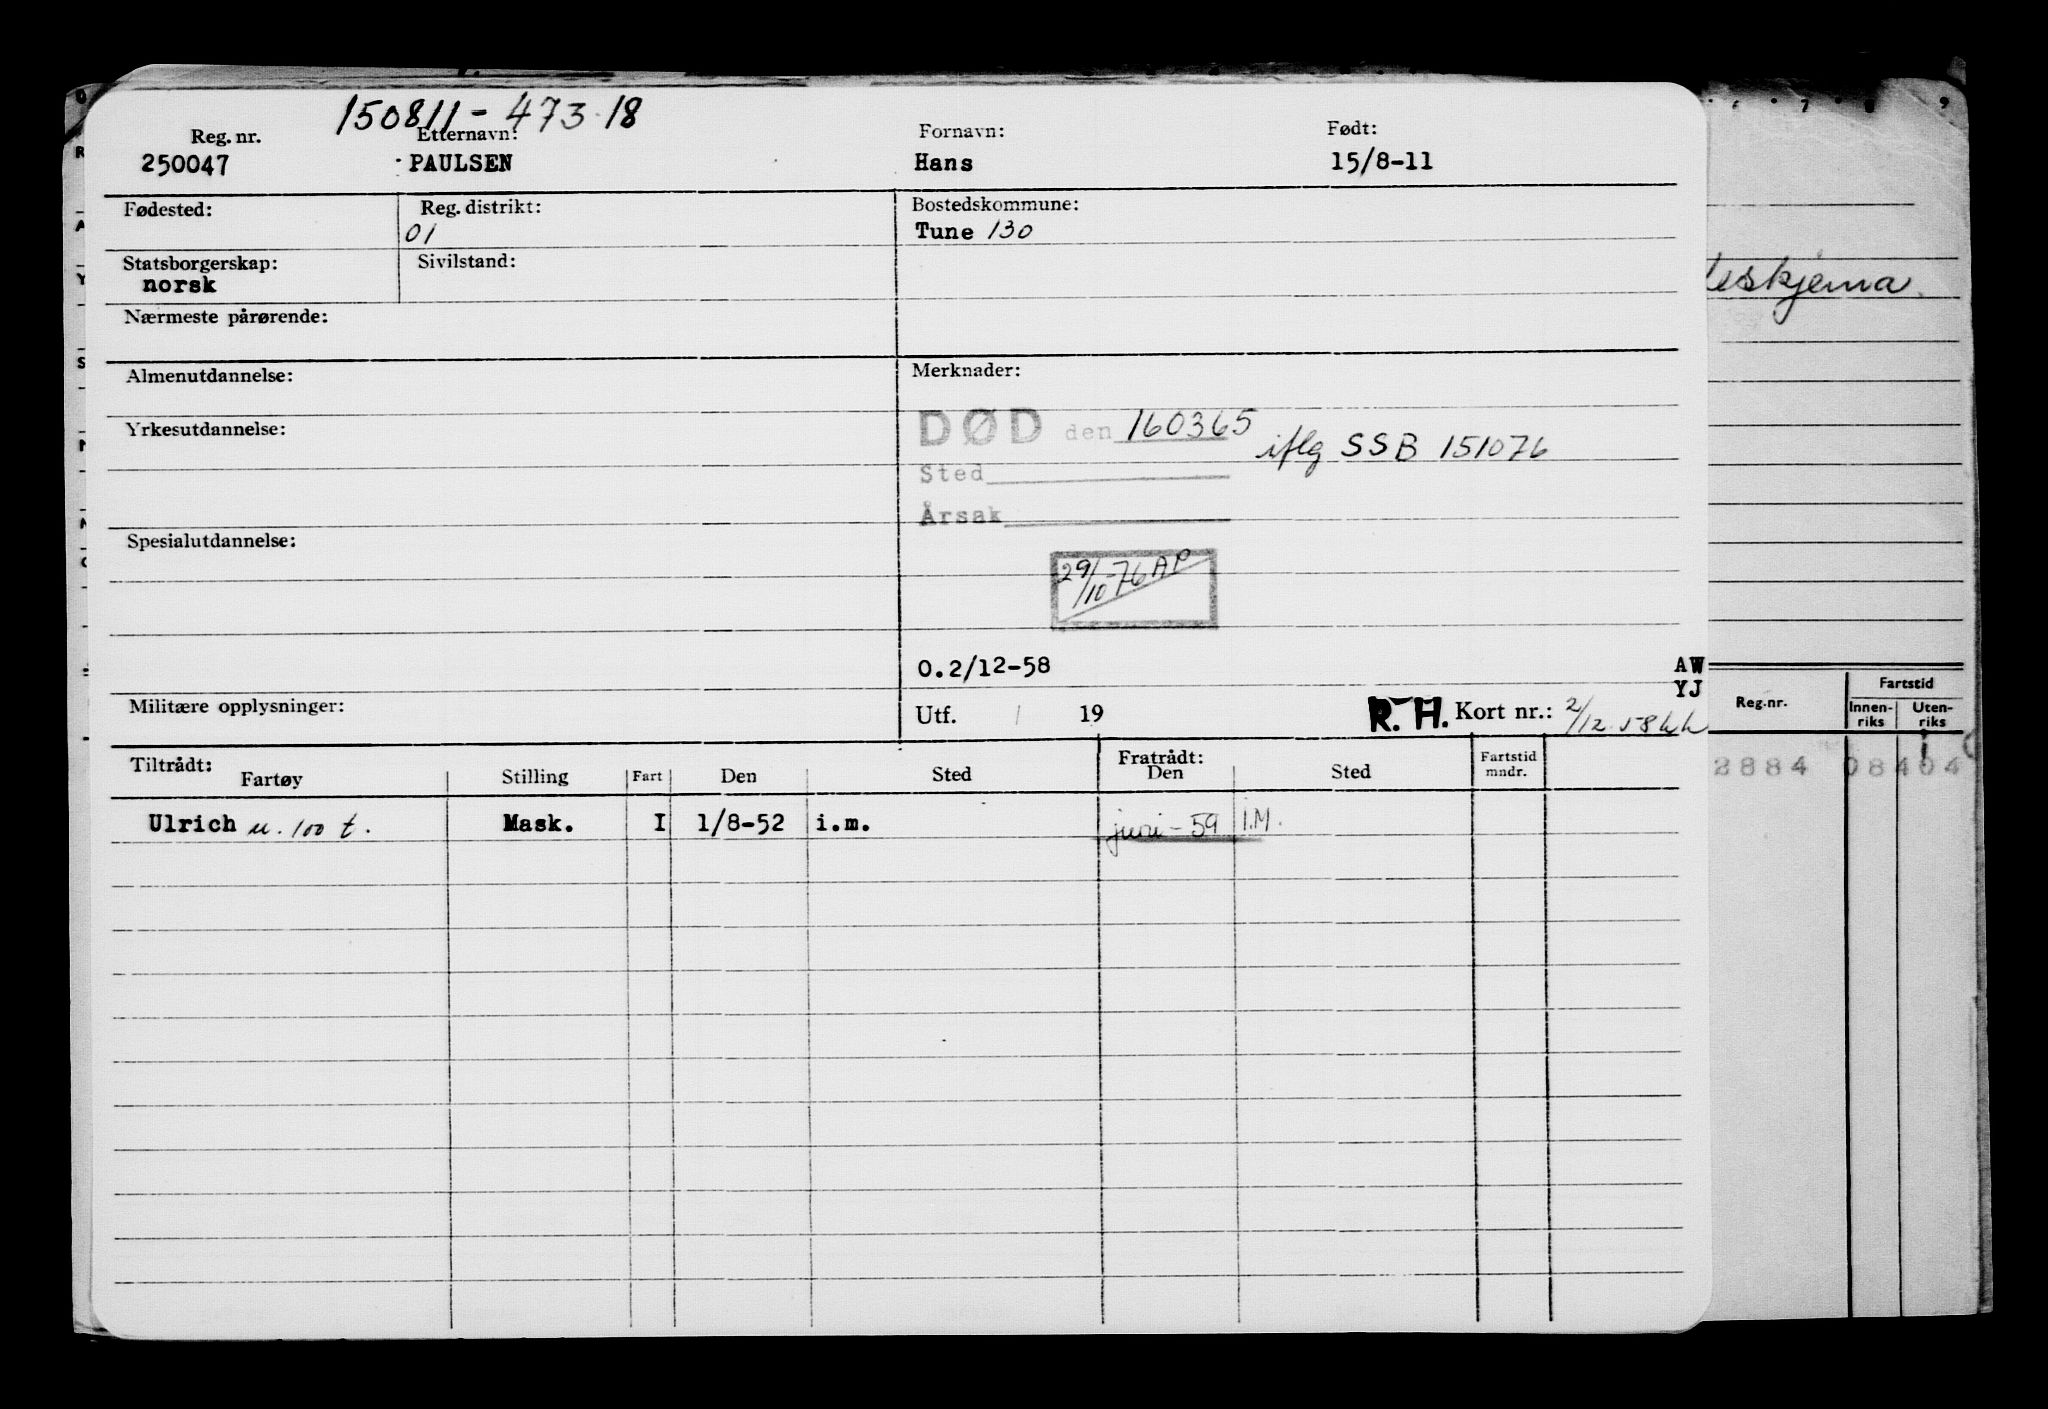 150811-473.18
Reg. nr. Etternavn: Fornavn: Født:
250047 PAULSEN Hans 15/8-11
Fødested: Reg. distrikt: Bostedskommune:
01 Tune 130
Statsborgerskap: Sivilstand:
norsk
Nærmeste pårørende:
Almenutdannelse: Merknader:
DØD den 160365
Yrkesutdannelse: iflg SSB 151076
Sted
Årsak
Spesialutdannelse:
29/10-76 AP
O.2/12-58
Militære opplysninger: Utf. / 19 R.H. Kort nr.: 2/12.58
Tiltrådt: Fratrådt: Fartstid mndr.
Fartøy Stilling Fart Den Sted Den Sted
Ulrich u. 100 t. Mask. I 1/8-52 i.m. juni-59 I.M.
6 7 8 9
AW
YJ
Reg.nr. Fartstid
Innenriks Utenriks
2884 08404